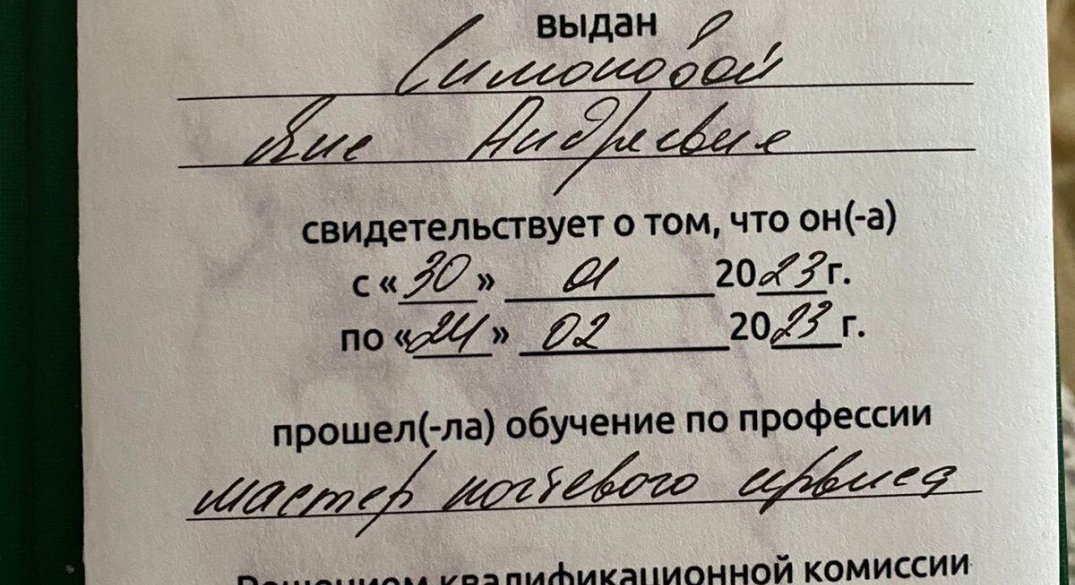 выдан
Симоновой
Яне Андреевне
свидетельствует о том, что он(-а)
с «30» 01 2023 г.
по «24» 02 2023 г.
прошел(-ла) обучение по профессии
мастер ногтевого сервиса
Решением квалификационной комиссии